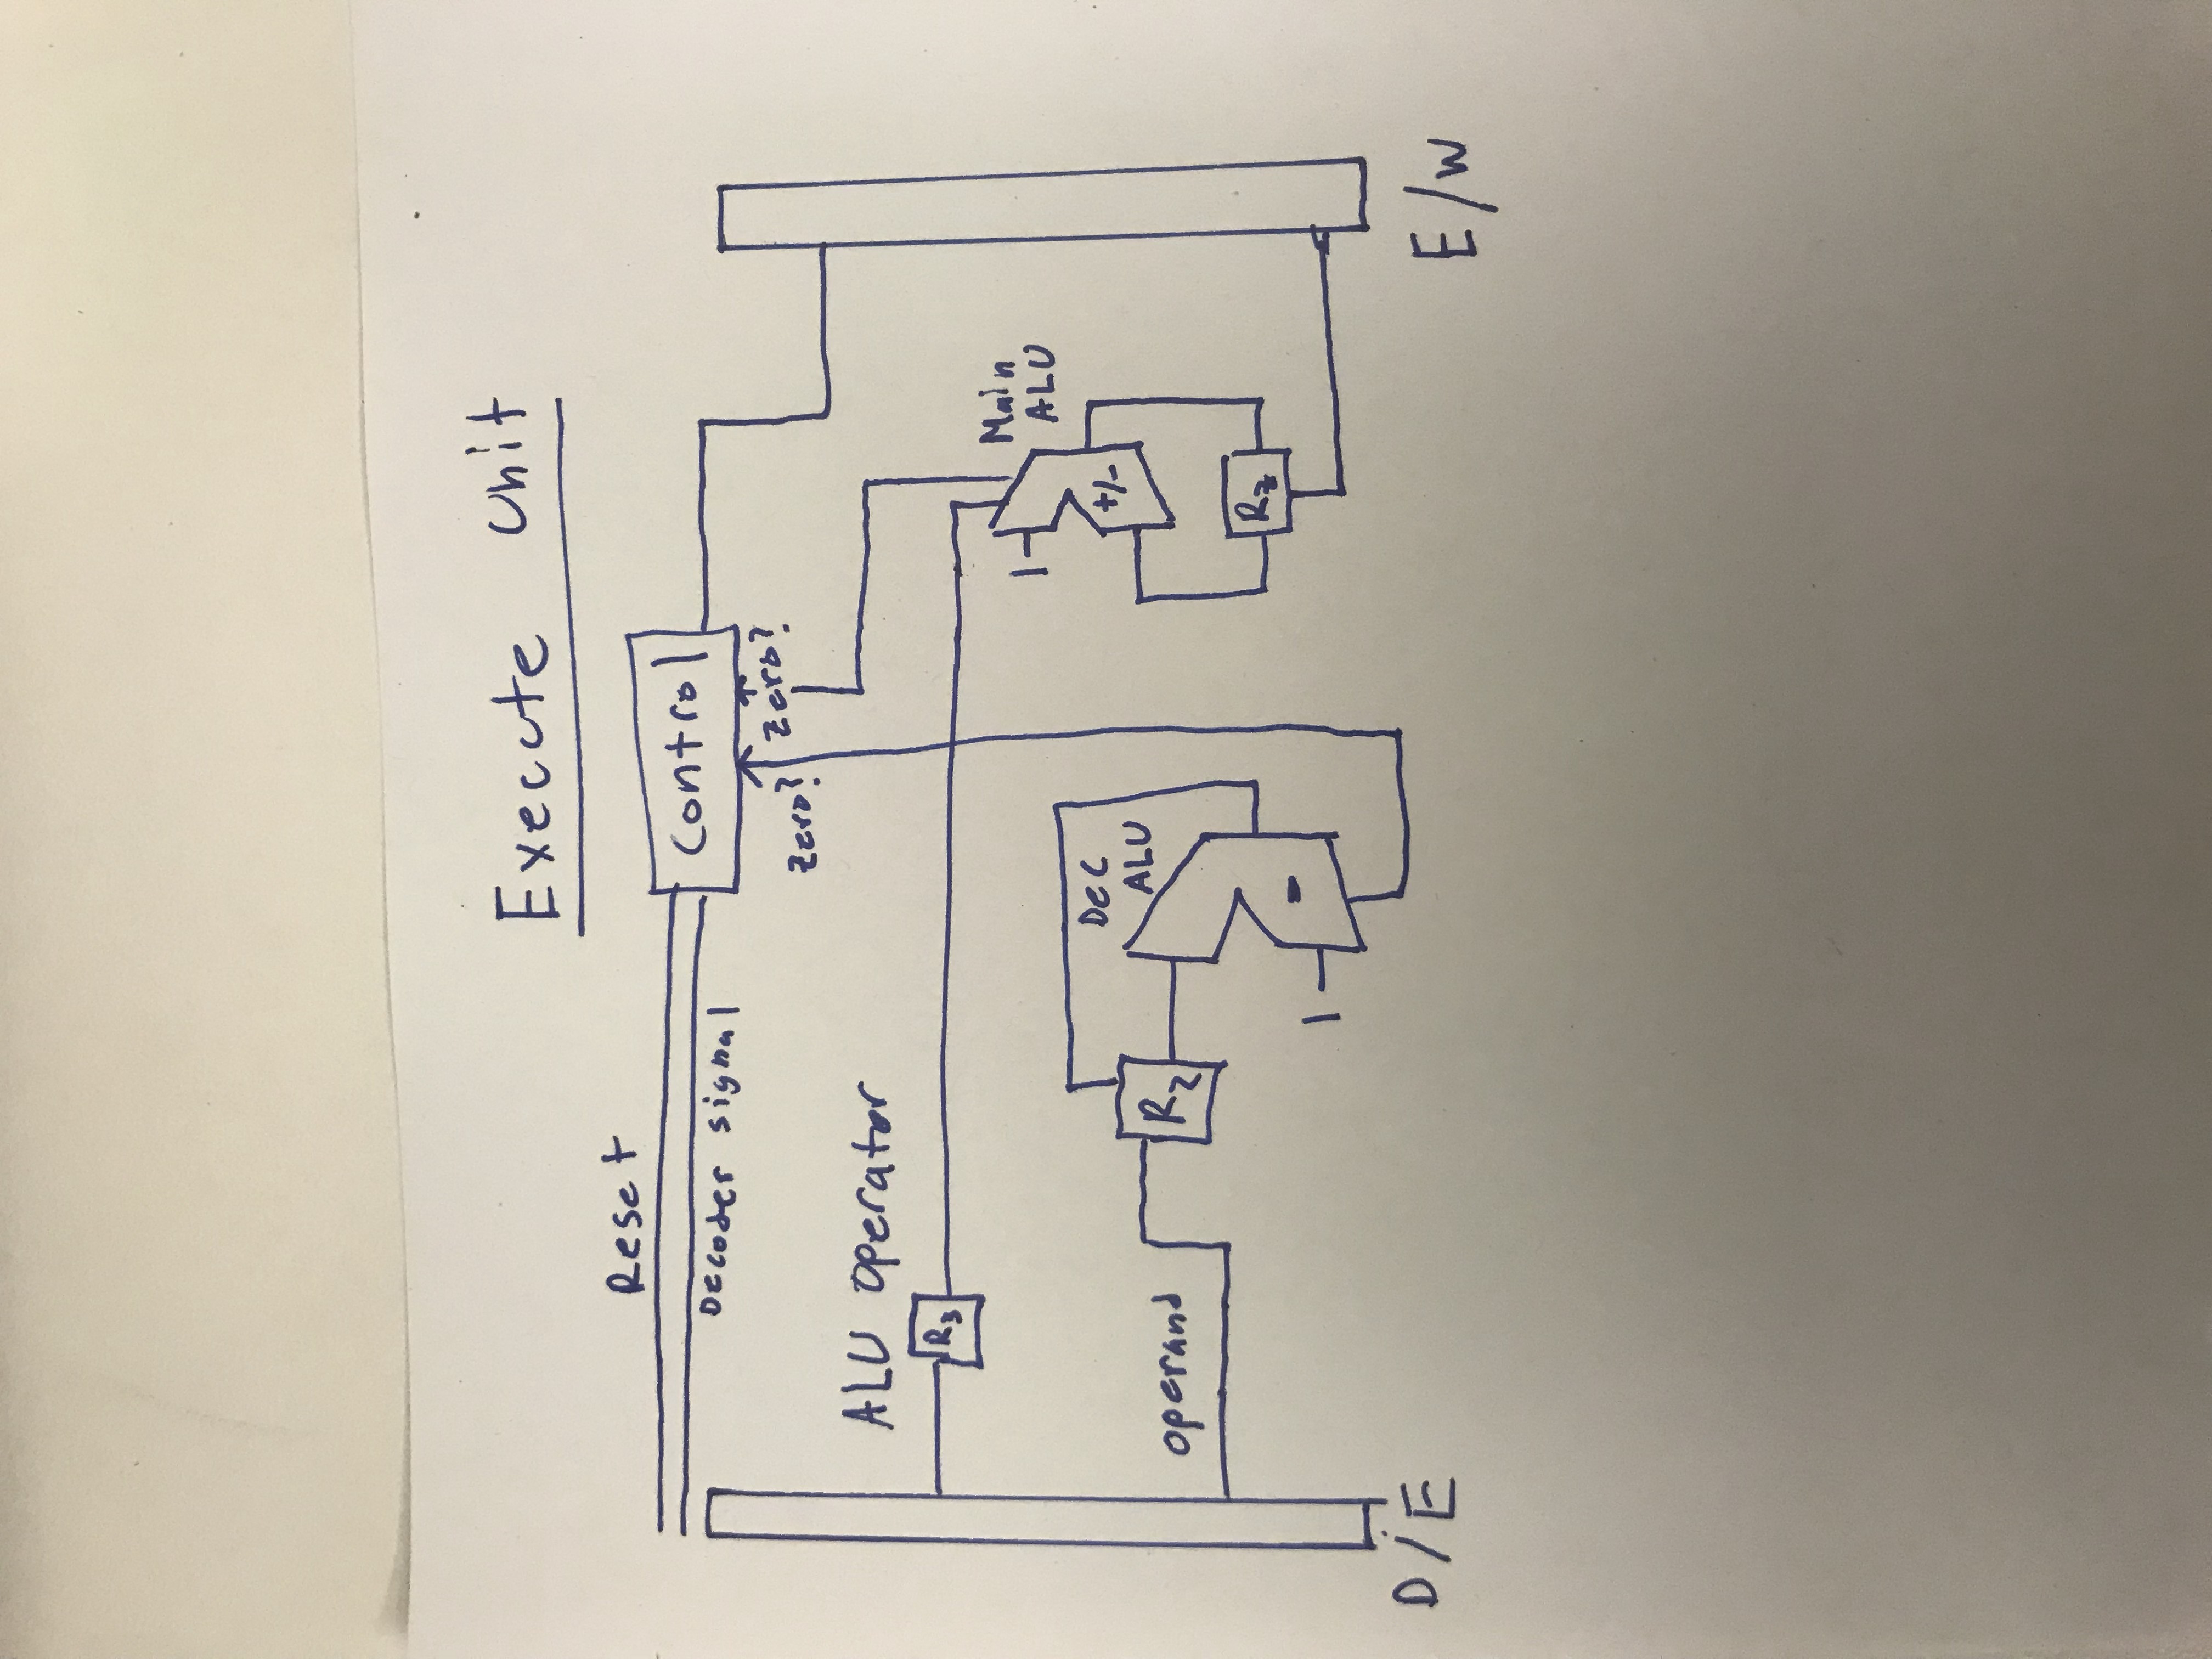 Execute Unit
Reset
Control
Decoder signal
Zero?
Zero?
ALU Operator
R3
Main
ALU
1
+/-
DEC
ALU
operand
R2
-
1
Rz
D/E
E/W